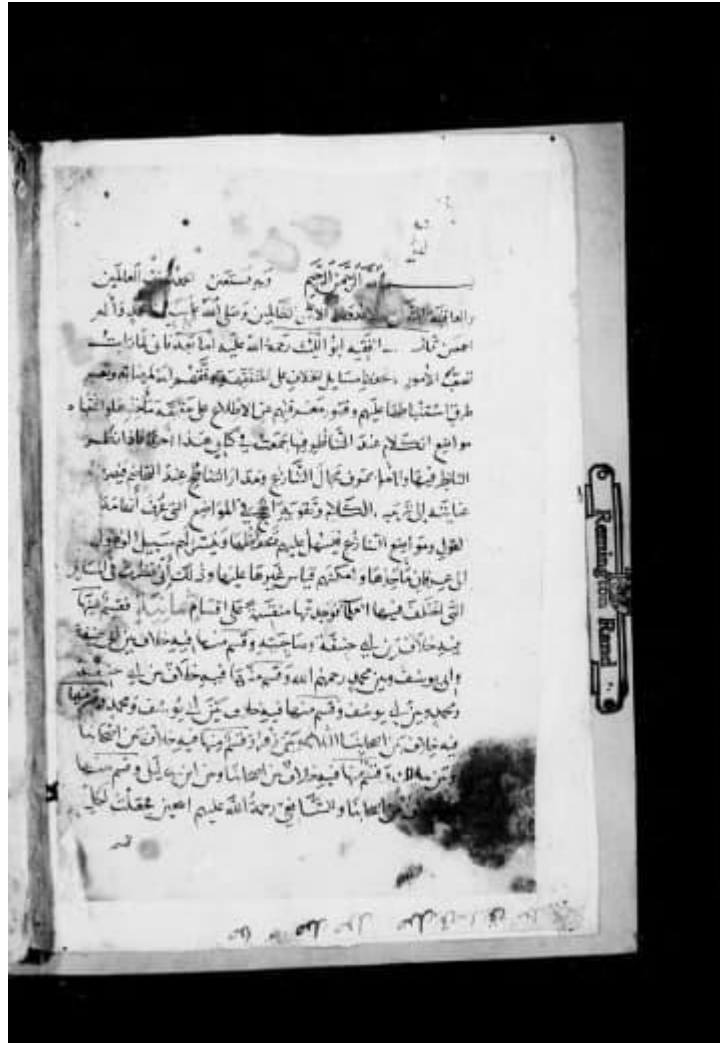 بسم الله الرحمن الرحيم وبه نستعين الحمد لله رب العالمين
والعاقبة للمتقين ولا عدوان الا على الظالمين وصلى الله على سيدنا محمد وآله
الفقيه ابو الليث رحمة الله عليه اما بعد فانى لما رايت
تصعب الأمور وحفظ مسايل الخلاف على المتفقهة وفقهم الله لمرضاته وتعسر
طرق استنباطها عليهم وقصور معرفتهم عن الاطلاع على حقيقة مأخذها
مواضع الكلام عند التناظر فيها جمعت فى كتابى هذا احرفا فاذا نظر
الناظر فيها وتاملها عرف محال التنازع ومدار التناجح عند التخاصم فيصرف
عنايته الى ترتيب الكلام وتقوية الحجج فى المواضع التى عرف أنها مدار
القول ومواضع التنازع فيسهل عليهم تحفظها ويتيسر لهم سبيل الوصول
الى عرفان مأخذها وامكنهم قياس غيرها عليها وذلك أنى نظرت فى المسايل
التى اختلف فيها العلماء فوجدتها منقسمة على اقسام ثمانية فقسم منها
فيه خلاف بين ابى حنيفة وصاحبيه وقسم منها فيه خلاف بين ابى حنيفة
وابى يوسف وبين محمد رحمهم الله وقسم منها فيه خلاف بين ابى حنيفة
ومحمد وبين ابى يوسف وقسم منها فيه خلاف بين ابى يوسف ومحمد وقسم منها
فيه خلاف بين اصحابنا الثلاثة وبين زفر وقسم منها فيه خلاف بين اصحابنا
وبين مالك وقسم منها فيه خلاف بين اصحابنا وبين ابن ابى ليلى وقسم منها
بين اصحابنا والشافعى رحمة الله عليهم اجمعين فجعلت لكل
قسم
Remington Rand